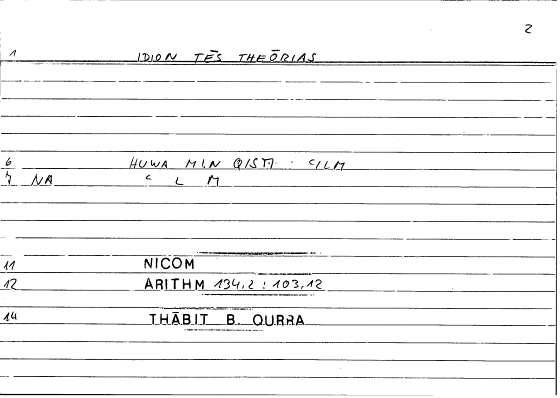 2
1 IDION TĒS THEŌRIAS
6 HUWA MIN QISṬĪ : ʿILM
7 NA ʿ L M
11 NICOM
12 ARITHM 134,2 : 103,12
14 THĀBIT B. QURRA